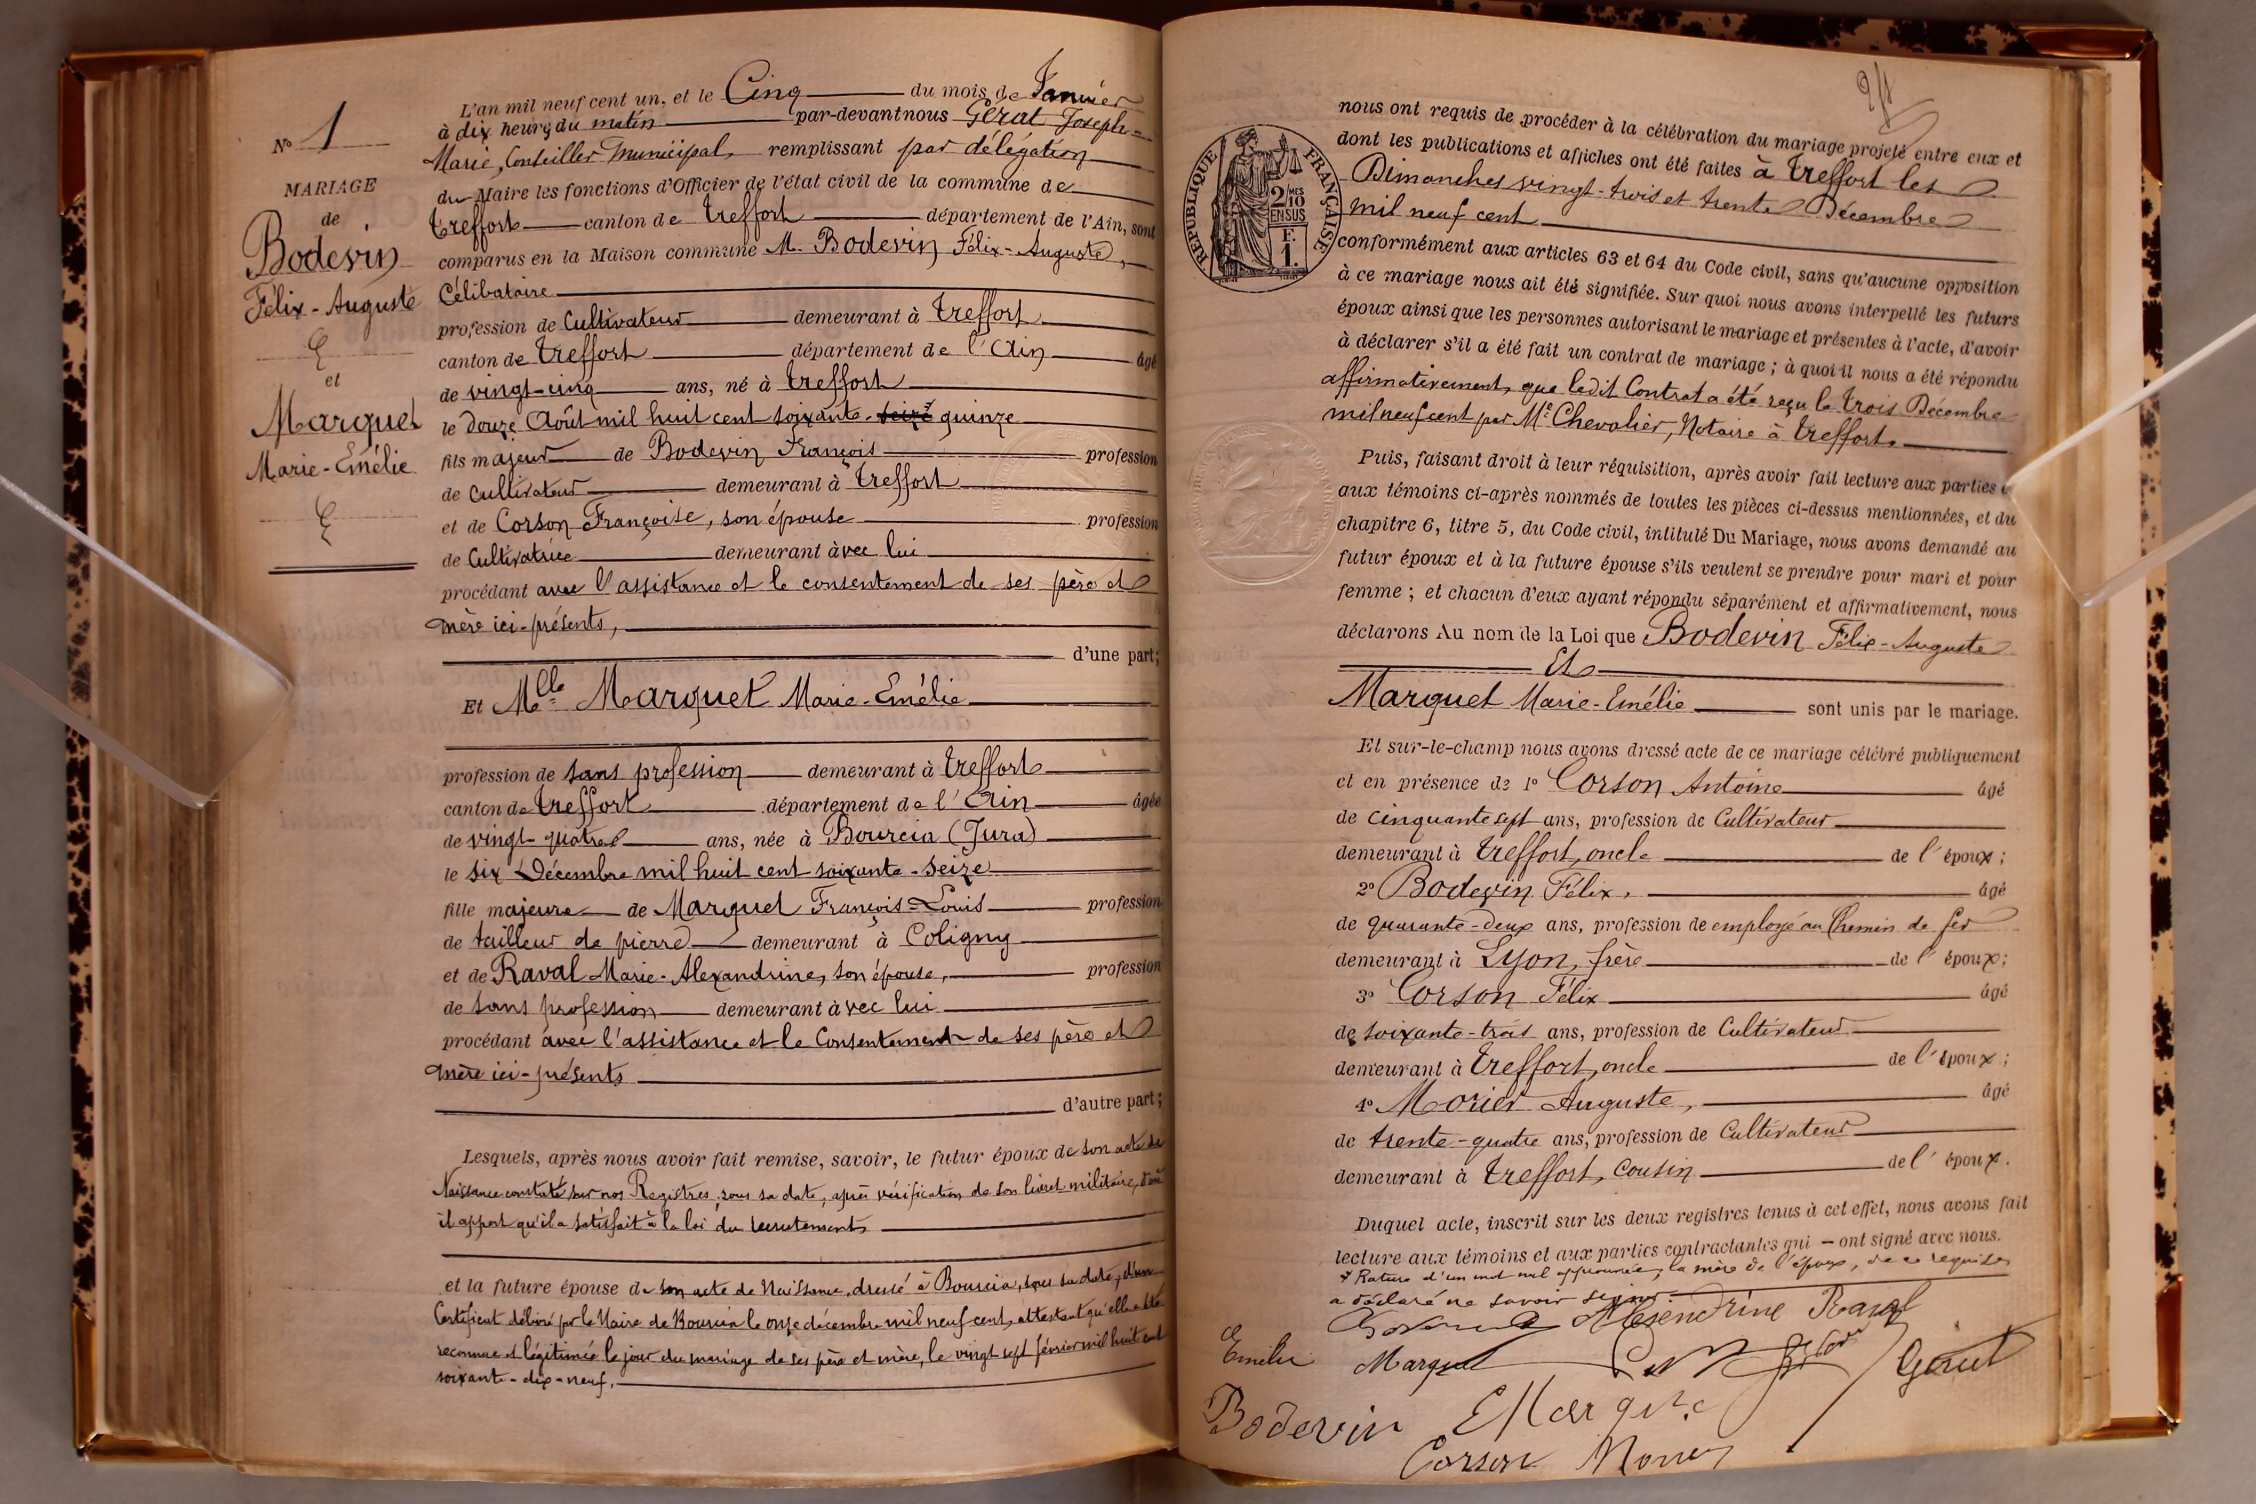 N° 1
MARIAGE
de
Bodevin
Félix-Auguste
&
et
Marquet
Marie-Emélie
&
L'an mil neuf cent un, et le Cinq du mois de Janvier
à dix heures du matin par-devant nous Gérat Joseph-
Marie, Conseiller Municipal, remplissant par délégation
du Maire les fonctions d'Officier de l'état civil de la commune de
Treffort canton de Treffort département de l'Ain, sont
comparus en la Maison commune M. Bodevin Félix-Auguste,
Célibataire
profession de Cultivateur demeurant à Treffort
canton de Treffort département de l'Ain âgé
de vingt-cinq ans, né à Treffort
le douze Août mil huit cent soixante-seize quinze
fils majeur de Bodevin François profession
de Cultivateur demeurant à Treffort
et de Corson Françoise, son épouse profession
de Cultivatrice demeurant avec lui
procédant avec l'assistance et le consentement de ses père et
mère ici-présents,
d'une part;
Et Mlle Marquet Marie-Emélie
profession de sans profession demeurant à Treffort
canton de Treffort département de l'Ain âgée
de vingt-quatre ans, née à Bourcia (Jura)
le six Décembre mil huit cent soixante-seize
fille majeure de Marquet François-Louis profession
de tailleur de pierre demeurant à Coligny
et de Raval Marie-Alexandrine, son épouse, profession
de sans profession demeurant avec lui
procédant avec l'assistance et le Consentement de ses père et
mère ici-présents
d'autre part;
Lesquels, après nous avoir fait remise, savoir, le futur époux de son acte de
Naissance constaté sur nos Registres, sous sa date, après vérification de son livret militaire, d'où
il appert qu'il a satisfait à la loi du recrutement
et la future épouse de son acte de Naissance, dressé à Bourcia, sous sa date, d'un
Certificat délivré par le Maire de Bourcia le onze décembre mil neuf cent, attestant qu'elle a été
reconnue et légitimée le jour du mariage de ses père et mère, le vingt sept février mil huit cent
soixante-dix-neuf,
nous ont requis de procéder à la célébration du mariage projeté entre eux et
dont les publications et affiches ont été faites à Treffort les
Dimanches vingt-trois et trente Décembre
mil neuf cent
RÉPUBLIQUE FRANÇAISE
2 MES
10
EN SUS
F.
1.
conformément aux articles 63 et 64 du Code civil, sans qu'aucune opposition
à ce mariage nous ait été signifiée. Sur quoi nous avons interpellé les futurs
époux ainsi que les personnes autorisant le mariage et présentes à l'acte, d'avoir
à déclarer s'il a été fait un contrat de mariage ; à quoi il nous a été répondu
affirmativement, que ledit Contrat a été reçu le trois Décembre
mil neuf cent par Me Chevalier, Notaire à Treffort.
Puis, faisant droit à leur réquisition, après avoir fait lecture aux parties
aux témoins ci-après nommés de toutes les pièces ci-dessus mentionnées, et du
chapitre 6, titre 5, du Code civil, intitulé Du Mariage, nous avons demandé au
futur époux et à la future épouse s'ils veulent se prendre pour mari et pour
femme ; et chacun d'eux ayant répondu séparément et affirmativement, nous
déclarons Au nom de la Loi que Bodevin Félix-Auguste
Et
Marquet Marie-Emélie sont unis par le mariage.
Et sur-le-champ nous avons dressé acte de ce mariage célébré publiquement
et en présence de 1° Corson Antoine âgé
de cinquante sept ans, profession de Cultivateur
demeurant à Treffort, oncle de l'époux;
2° Bodevin Félix, âgé
de quarante-deux ans, profession de employé au Chemin de fer
demeurant à Lyon, frère de l'époux;
3° Corson Félix âgé
de soixante-trois ans, profession de Cultivateur
demeurant à Treffort, oncle de l'époux;
4° Morier Auguste, âgé
de trente-quatre ans, profession de Cultivateur
demeurant à Treffort, Cousin de l'époux.
Duquel acte, inscrit sur les deux registres tenus à cet effet, nous avons fait
lecture aux témoins et aux parties contractantes qui – ont signé avec nous.
Rature d'un mot nul approuvée, la mère de l'époux, de ce requise
a déclaré ne savoir signer.
Alexendrine Raval
Emilie Marquet
Gérat
Bodevin
Corson